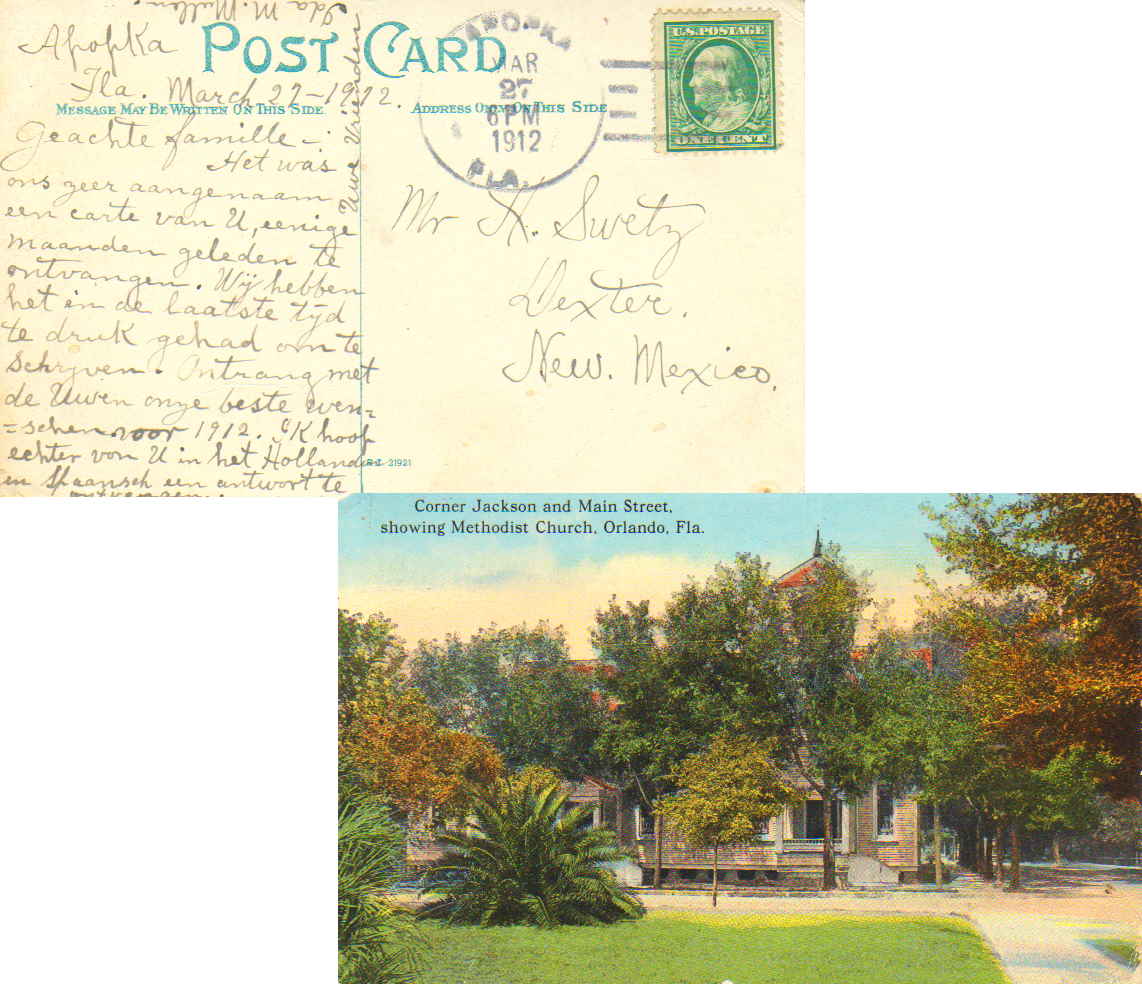 POST CARD
MESSAGE MAY BE WRITTEN ON THIS SIDE
ADDRESS ONLY ON THIS SIDE
APOPKA
MAR
27
6 PM
1912
FLA.
U.S. POSTAGE
ONE CENT
Apopka
Fla. March 27-1912.
Geachte familie:-
Het was
ons zeer aangenaam
een carte van U, eenige
maanden geleden te
ontvangen. Wij hebben
het in de laatste tijd
te druk gehad om te
schrijven. Ontvang met
de Uwen onze beste wen=
=schen voor 1912. Ik hoop
echter van U in het Hollandsch
en Spaansch een antwoort te
ontvangen.
Uwe Vrienden
Ida M.
Mr H. Swetz
Dexter.
New. Mexico.
21921
Corner Jackson and Main Street,
showing Methodist Church, Orlando, Fla.